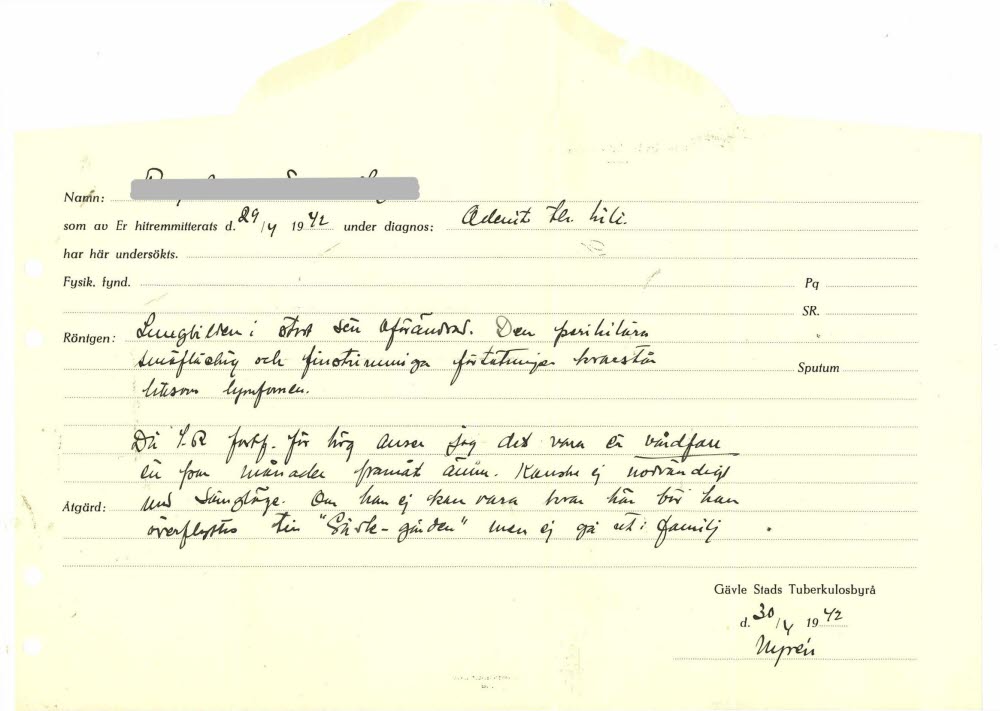 Namn:
som av Er hitremmitterats d. 29/4 1942 under diagnos: Adenit tbc hili.
har här undersökts.
Fysik. fynd. Pq
SR.
Röntgen: Lungbilden i stort sett oförändrad. Den perihilära
småfläckig och finstrimmiga förtätningen kvarstår
liksom lymfomen.
Sputum
Då S.R fortf. för hög anser jag det vara en vårdfall
en par månader framåt ännu. Kanske ej nödvändigt
Åtgärd: med sängläge. Om han ej kan vara kvar här bör han
överflyttas till "-gården" men ej gå ut i familj.
Gävle Stads Tuberkulosbyrå
d. 30/4 1942
Nyrén